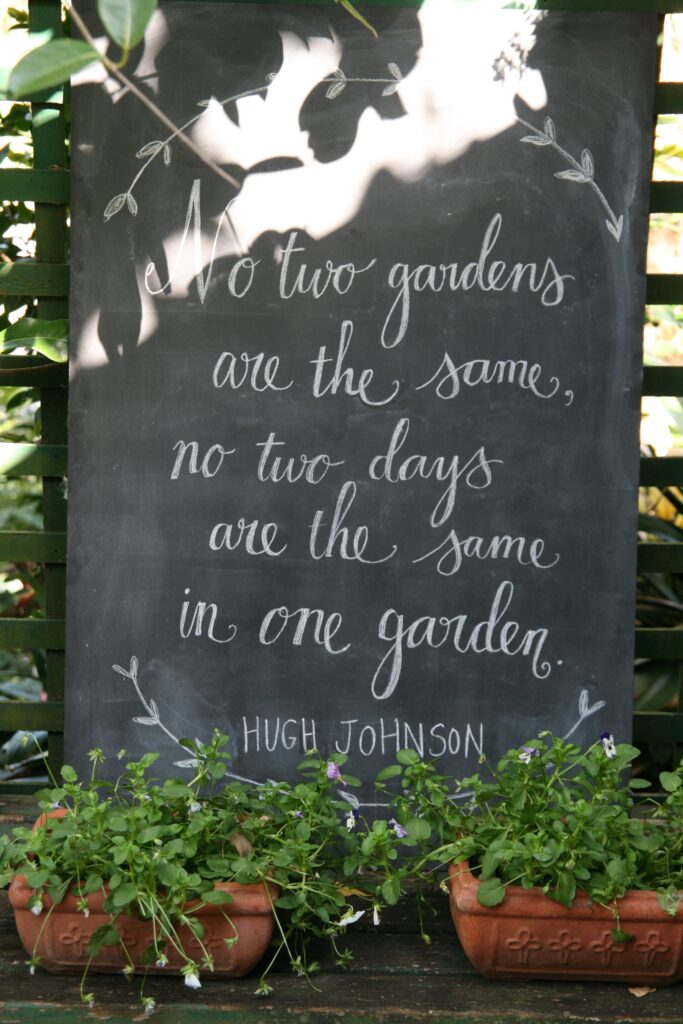 No two gardens
are the same,
no two days
are the same
in one garden.
HUGH JOHNSON